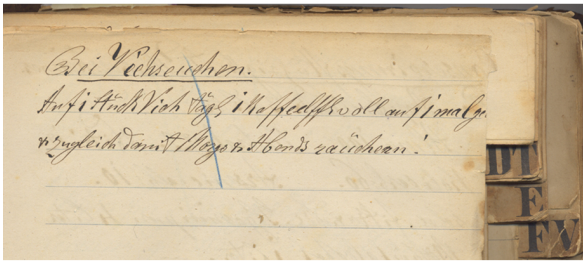 Bei Viehseuchen.
Auf 1 Stück Vieh tägl. 1 Kaffelffl. voll auf 1 mal
u. zugleich damit Morgs u. Abends räuchern!
DT
E
FW